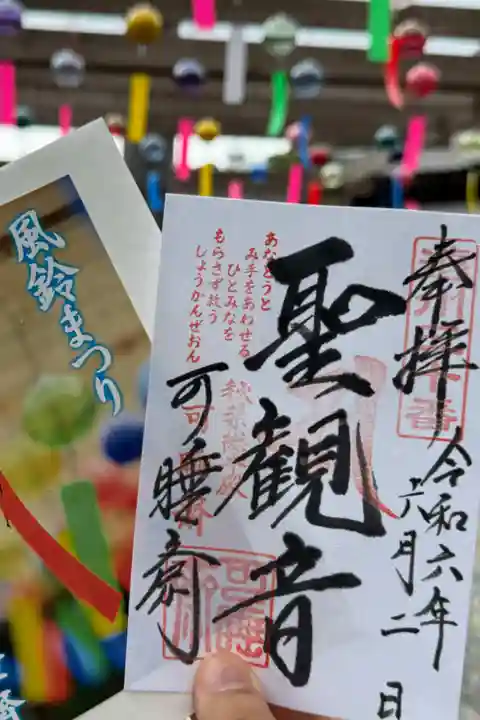 奉拝
令和六年
六月二日
聖観音
可睡斎
あなとうと
み手をあわせる
ひとみなを
もらさず救う
しょうかんぜおん
風鈴まつり